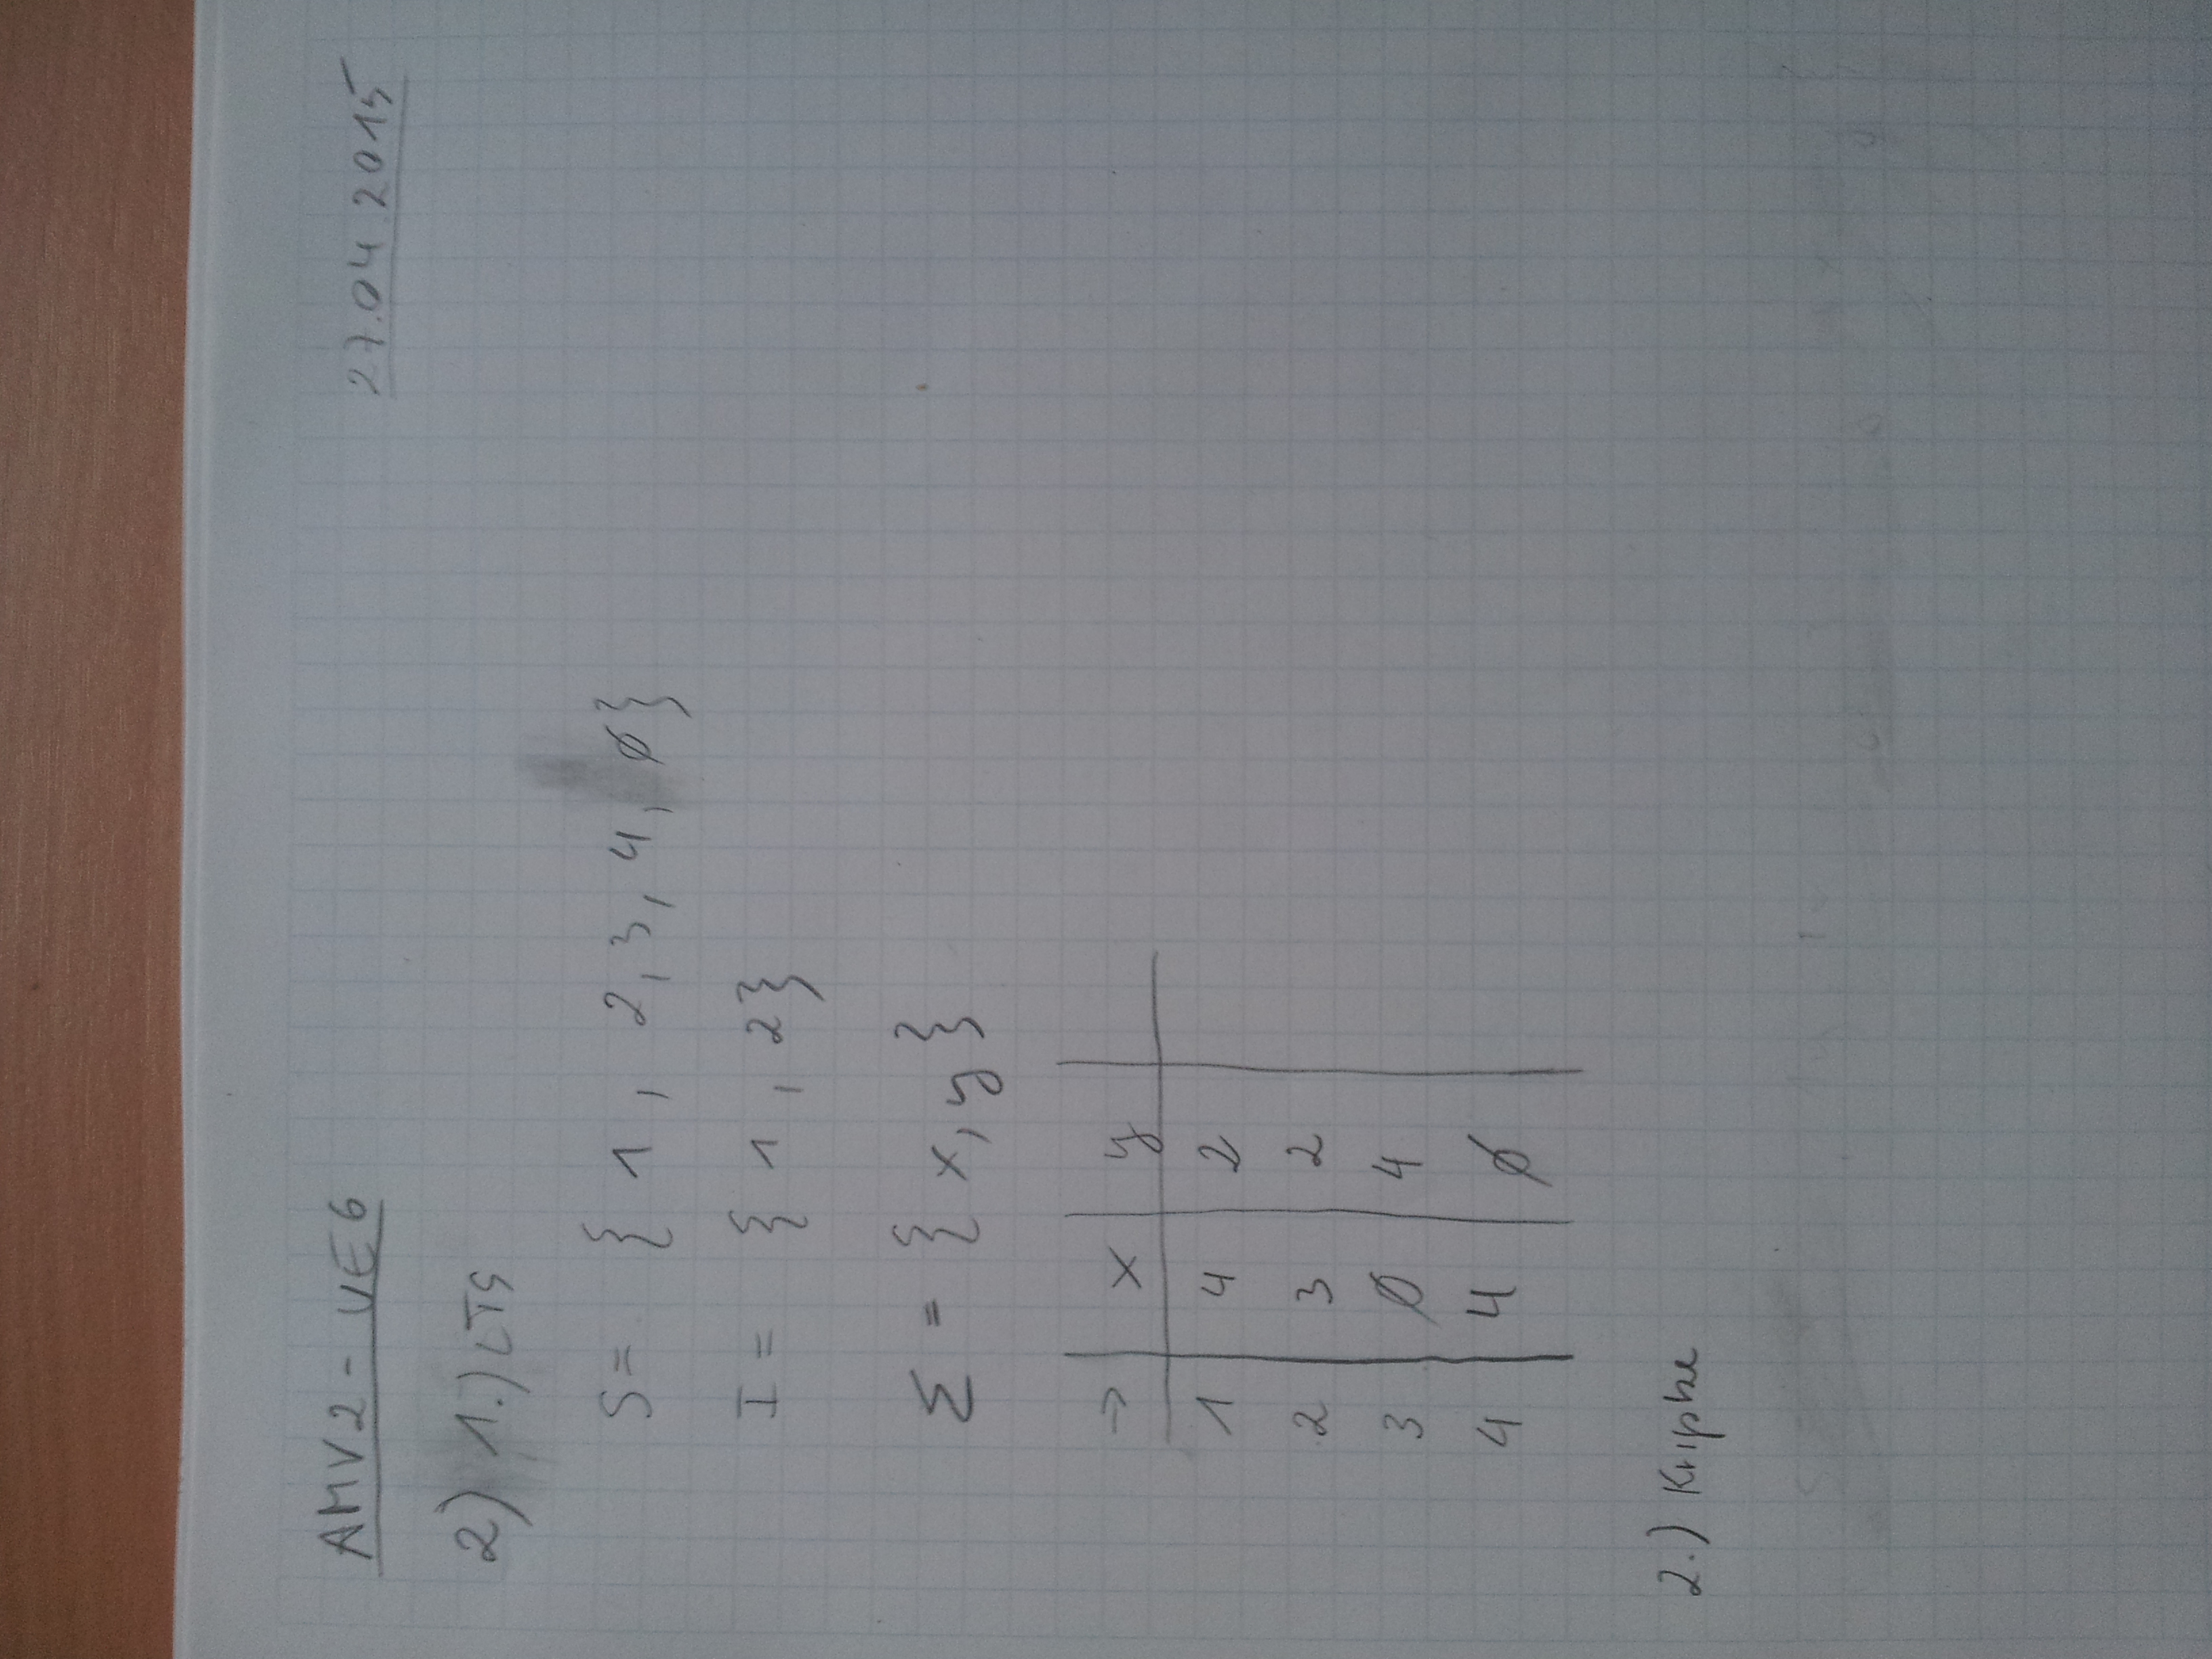 AMV2 - UE6 27.04.2015
2) 1.) LTS
S = { 1, 2, 3, 4, ∅ }
I = { 1, 2 }
Σ = { x, y }
→ x y
1 4 2
2 3 2
3 ∅ 4
4 4 ∅
2.) Kripke